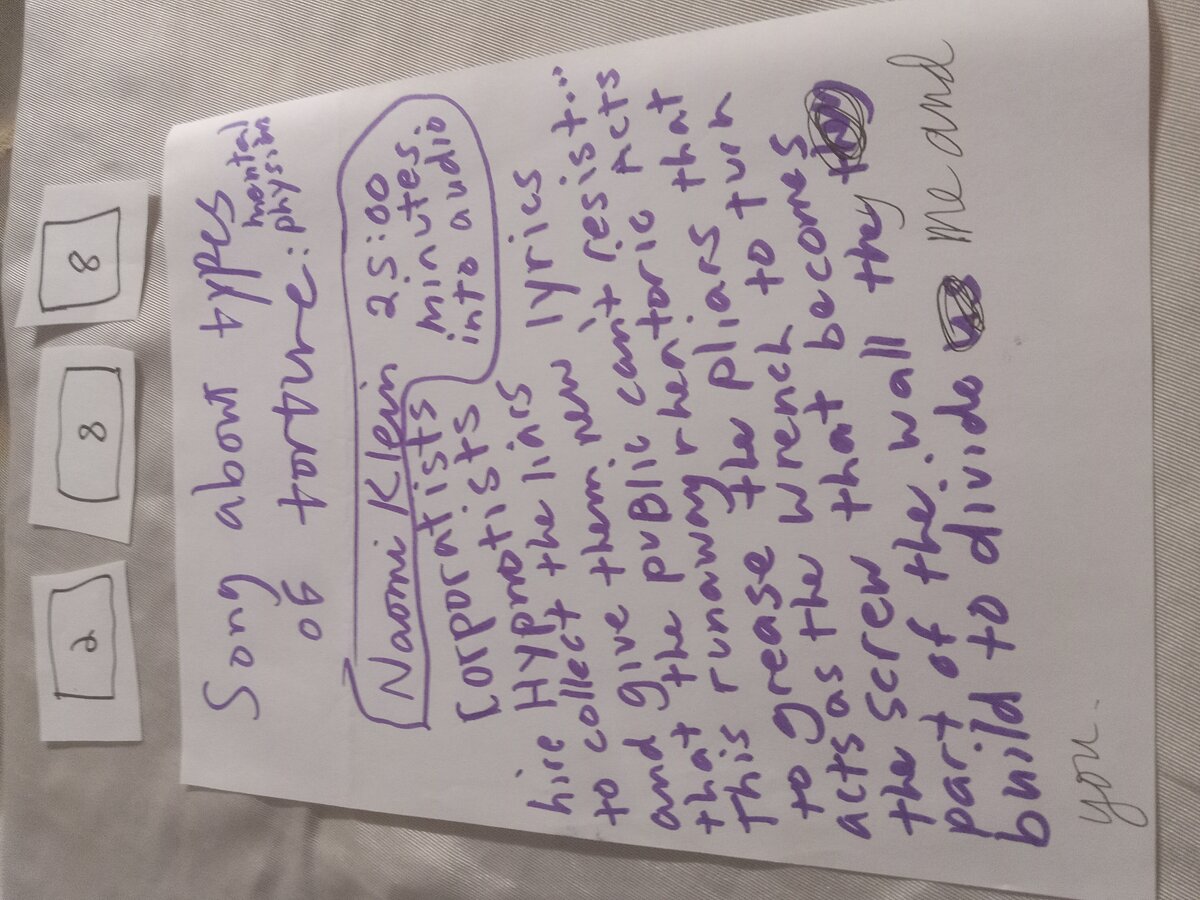 2 8 8
Song about types
of torture: mental
Naomi Klein 25:00
minutes
into audio
[orporatists
hire Hypnotists
to collect the liars
and give them new lyrics
that the puBLic can't resist...
This runaway rhentoric acts
to grease the pliars that
acts as the wrench to turn
the screw that becomes
part of the wall they
build to divide me and
you.